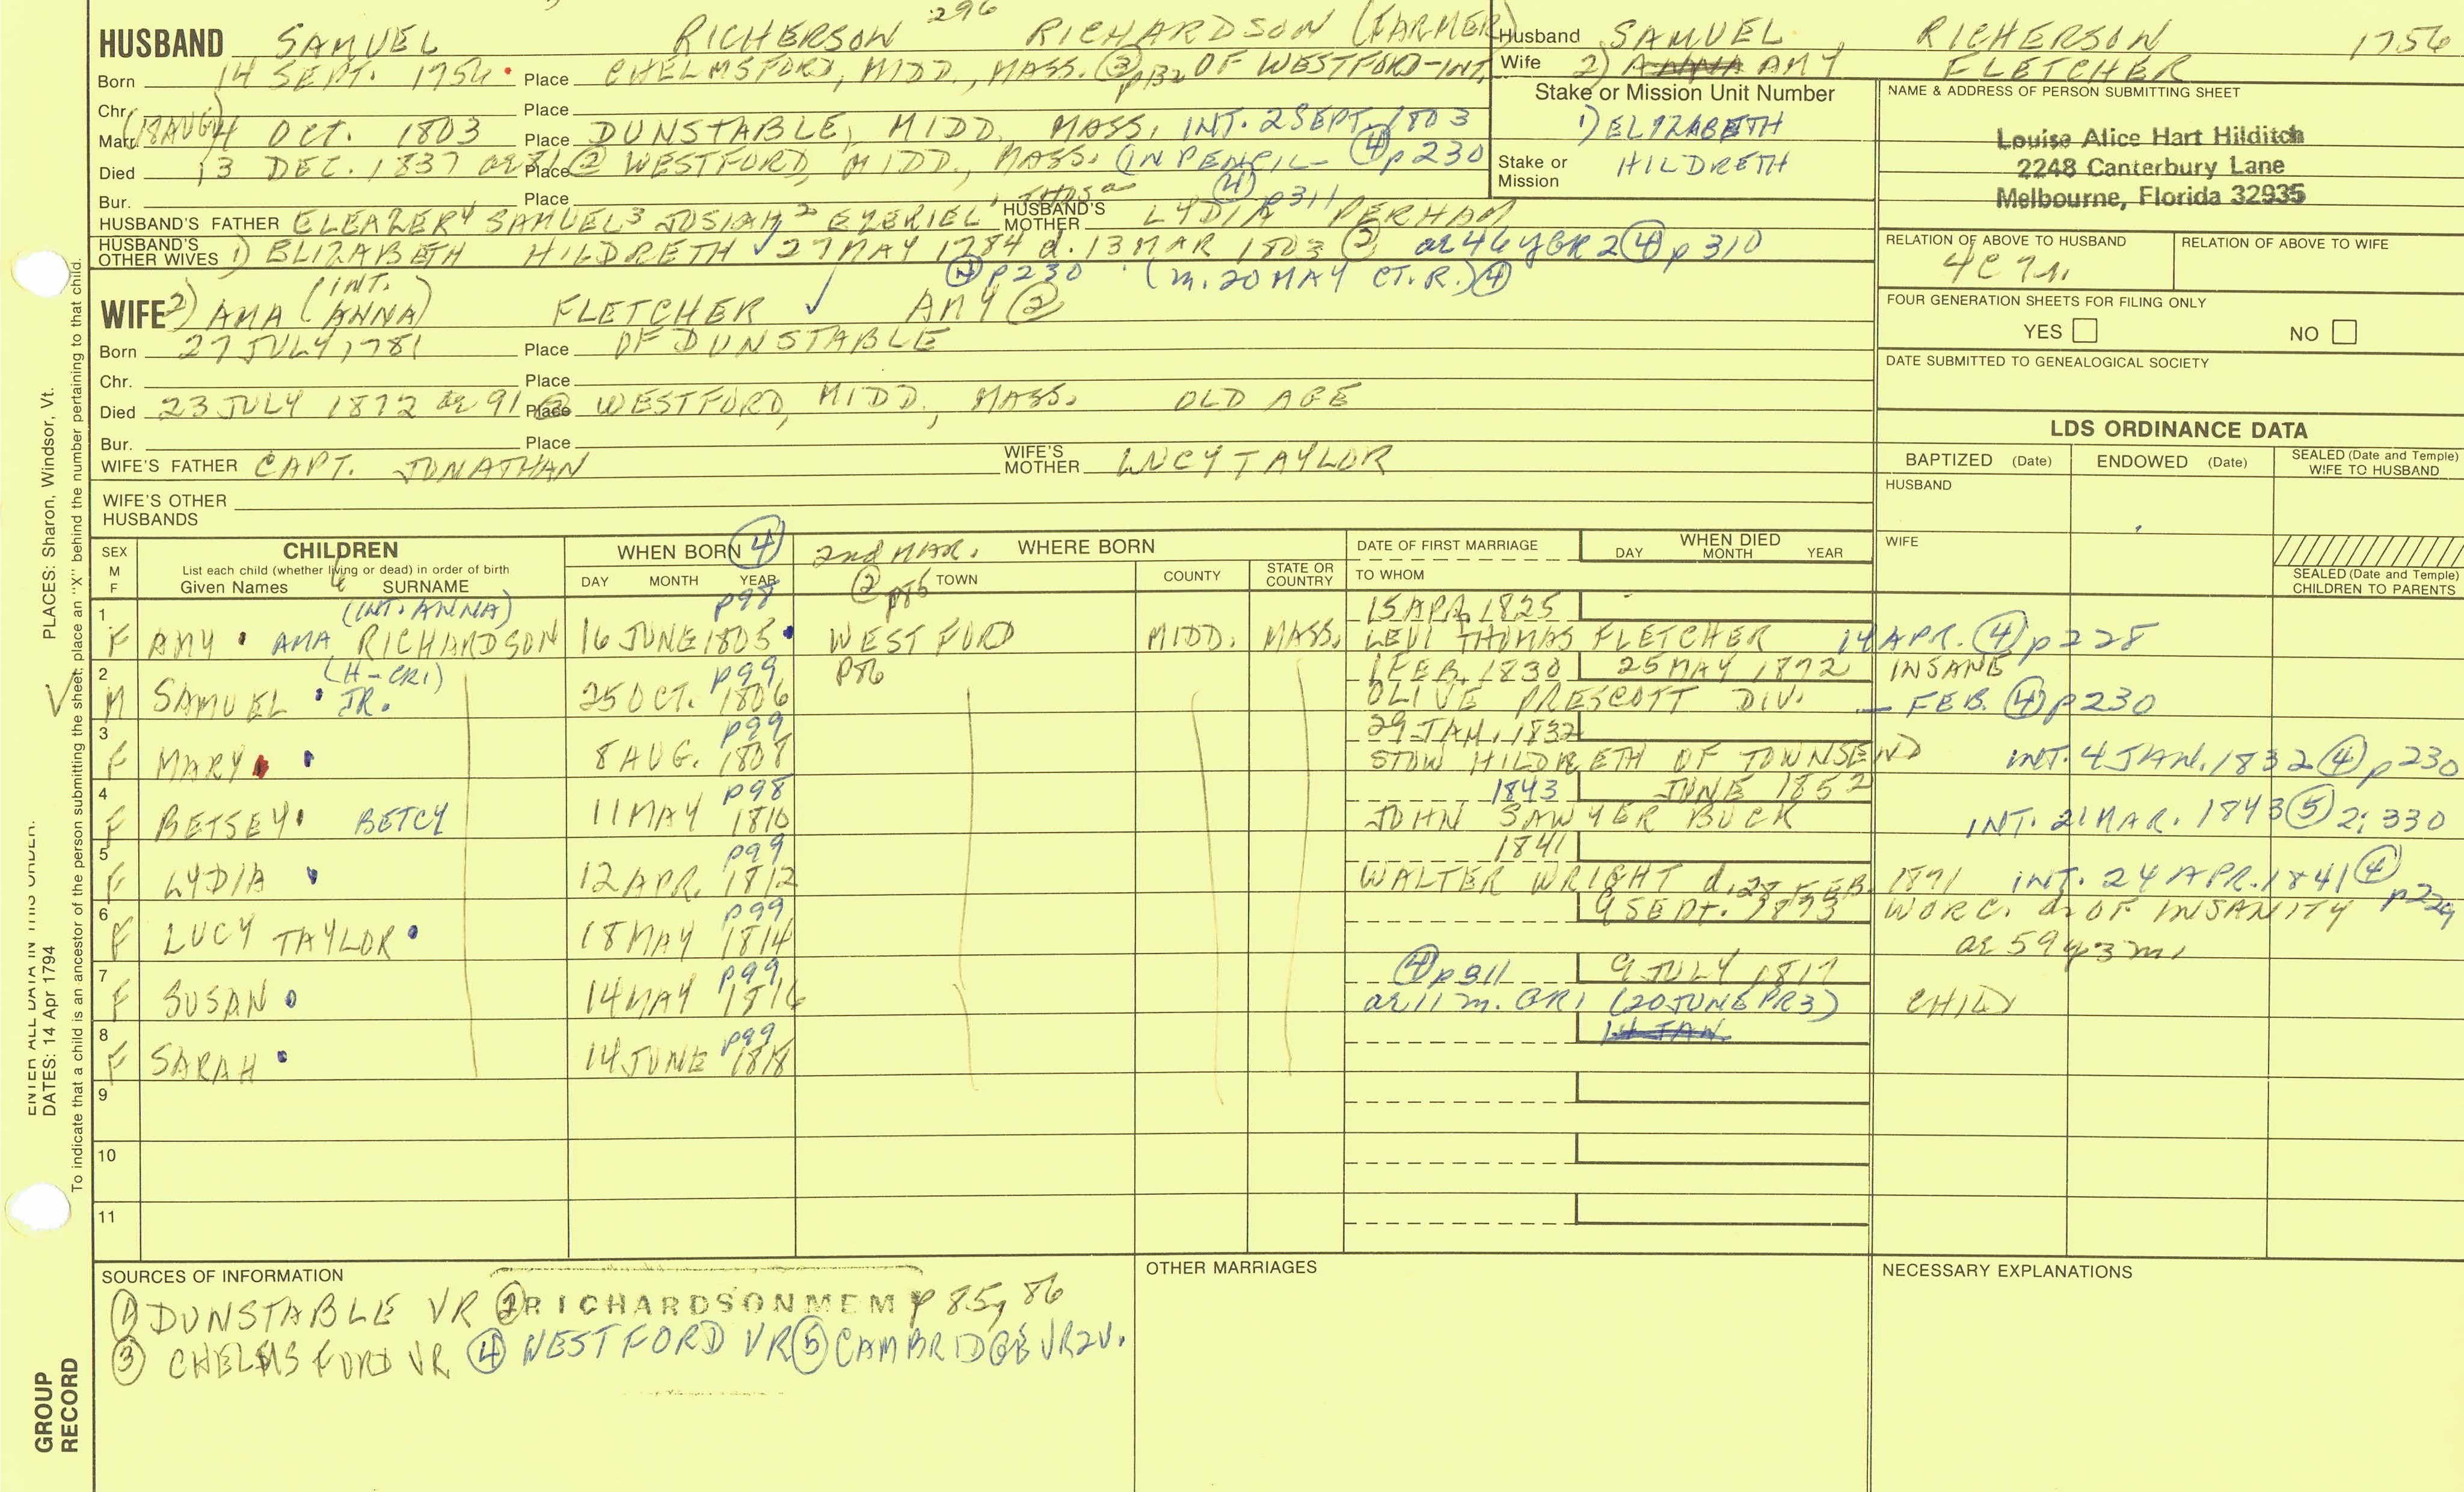 296
HUSBAND SAMUEL RICHERSON RICHARDSON (FARMER)
Born 14 SEPT. 1756 Place CHELMSFORD, MIDD., MASS. (3) p132 OF WESTFORD-INT.
Chr. Place
Marr. (18 AUG) 4 OCT. 1803 Place DUNSTABLE, MIDD. MASS. INT. 2 SEPT. 1803
Died 13 DEC. 1837 ae 81 (2) Place WESTFORD, MIDD., MASS. (IN PENCIL- (4) p230
Bur. Place
(4) p311
HUSBAND'S FATHER ELEAZER4 SAMUEL3 JOSIAH2 EZEKIEL1 HUSBAND'S MOTHER LYDIA PERHAM
HUSBAND'S OTHER WIVES 1) ELIZABETH HILDRETH ✓ 27 MAY 1784 d. 13 MAR 1803 (2) ae 46 y GR 2 (4) p310
(4) p230 (m. 20 MAY CT. R.) (4)
(INT.
WIFE 2) AMA (ANNA) FLETCHER ✓ AMY (2)
Born 27 JULY 1781 Place OF DUNSTABLE
Chr. Place
Died 23 JULY 1872 ae 91 (2) Place WESTFORD, MIDD., MASS. OLD AGE
Bur. Place
WIFE'S FATHER CAPT. JONATHAN WIFE'S MOTHER LUCY TAYLOR
WIFE'S OTHER HUSBANDS
Husband SAMUEL RICHERSON 1756
Wife 2) ANNA AMY FLETCHER
Stake or Mission Unit Number
1) ELIZABETH
Stake or Mission HILDRETH
NAME & ADDRESS OF PERSON SUBMITTING SHEET
Louise Alice Hart Hilditch
2248 Canterbury Lane
Melbourne, Florida 32935
RELATION OF ABOVE TO HUSBAND RELATION OF ABOVE TO WIFE
4C 7r.
FOUR GENERATION SHEETS FOR FILING ONLY
YES NO
DATE SUBMITTED TO GENEALOGICAL SOCIETY
LDS ORDINANCE DATA
BAPTIZED (Date) ENDOWED (Date) SEALED (Date and Temple) WIFE TO HUSBAND
HUSBAND
WIFE
SEALED (Date and Temple) CHILDREN TO PARENTS
SEX M F CHILDREN
List each child (whether living or dead) in order of birth
Given Names SURNAME
WHEN BORN (4) DAY MONTH YEAR
2nd MAR. WHERE BORN
(2) p85 TOWN COUNTY STATE OR COUNTRY
DATE OF FIRST MARRIAGE
TO WHOM
WHEN DIED DAY MONTH YEAR
(INT. ANNA) p98 15 APR. 1825
1 F AMY • AMA RICHARDSON 16 JUNE 1805 WESTFORD MIDD. MASS. LEVI THOMAS FLETCHER 14 APR. (4) p228
(H-CR1) p99 p86 1 FEB. 1830 25 MAY 1872 INSANE
2 M SAMUEL • JR. 25 OCT. 1806 OLIVE PRESCOTT DIV. - FEB. (4) p230
p99 29 JAN. 1832
3 F MARY 8 AUG. 1808 STOW HILDRETH OF TOWNSEND INT. 4 JAN. 1832 (4) p230
p98 1843 JUNE 1852
4 F BETSEY BETCY 11 MAY 1810 JOHN SAWYER BUCK INT. 21 MAR. 1843 (5) 2:330
p99 1841
5 F LYDIA 12 APR. 1812 WALTER WRIGHT d. 28 FEB. 1871 INT. 24 APR. 1841 (4) p229
p99 9 SEPT. 1873 WORC. d. OF INSANITY
6 F LUCY TAYLOR 18 MAY 1814 ae 59 y 3 m
p99 (4) p311 9 JULY 1817
7 F SUSAN 14 MAY 1816 ae 11 m. GR1 (20 JUNE PR3) CHILD
p99 14 JAN
8 F SARAH 14 JUNE 1818
9
10
11
SOURCES OF INFORMATION
(1) DUNSTABLE VR (2) RICHARDSON MEM p 85, 86
(3) CHELMSFORD VR (4) WESTFORD VR (5) CAMBRIDGE VR 2V.
OTHER MARRIAGES
NECESSARY EXPLANATIONS
ENTER ALL DATA IN THIS ORDER:
DATES: 14 Apr 1794 PLACES: Sharon, Windsor, Vt.
To indicate that a child is an ancestor of the person submitting the sheet, place an "X" behind the number pertaining to that child.
GROUP
RECORD